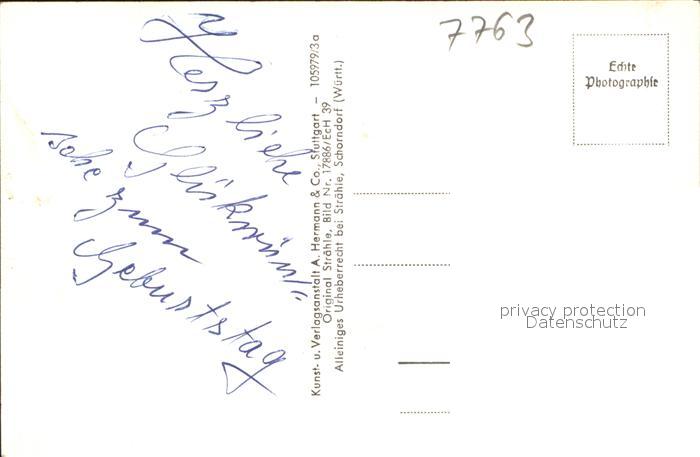 Herz liche
Glückwünsche
zum
Geburtstag
Kunst- u. Verlagsanstalt A. Hermann & Co., Stuttgart – 105979/3a
Original Strähle, Bild Nr. 17886/EcH 39
Alleiniges Urheberrecht bei Strähle, Schorndorf (Württ.)
7763
Echte
Photographie
privacy protection
Datenschutz